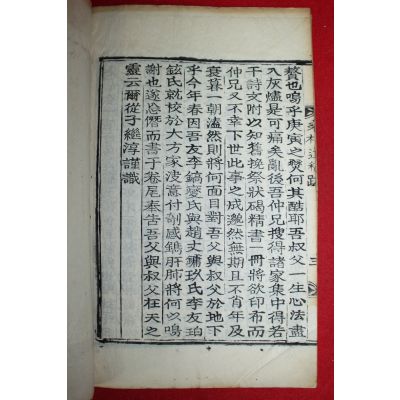 贅也嗚乎庚寅之燹何其酷耶吾叔父一生心法盡
入灰燼是可痛矣亂後吾仲兄搜得諸家集中得若
干詩文附以舊挽祭狀碣精書一冊將欲印布而
仲兄又不幸下世此事之成邈然無期且不肖年及
衰暮一朝溘然則將何面目對吾父與叔父於地下
乎今年春因吾友李鎬燮氏與趙丈鏞玖氏李友珀
鉉氏就校於大方家遂意付剞感鏤肝肺將何以鳴
謝也遂忘僭而書于卷尾奉告吾父與叔父在天之
靈云爾從子繼淳謹識
遺稿跋
三